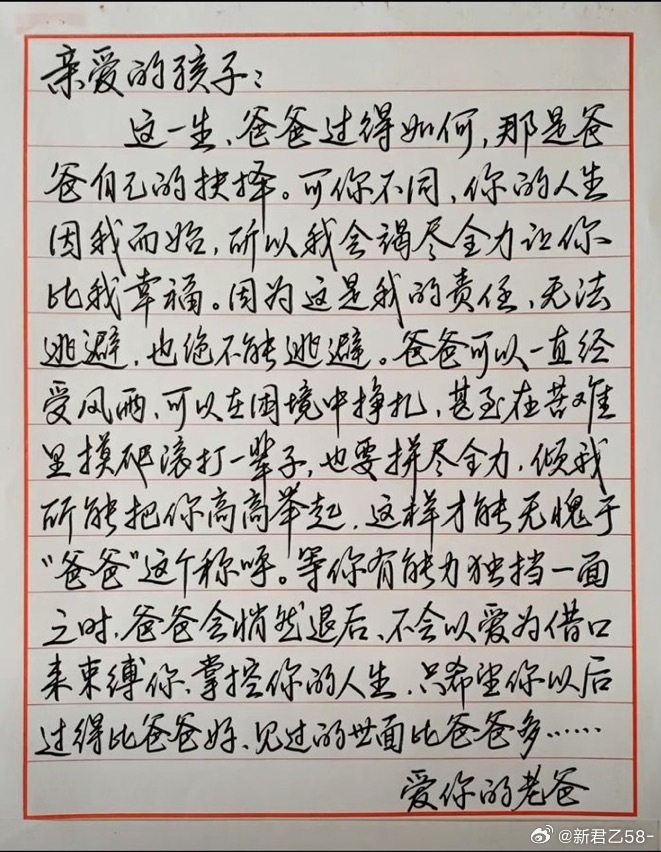 亲爱的孩子：
这一生、爸爸过得如何，那是爸
爸自己的抉择。可你不同，你的人生
因我而始，所以我会竭尽全力让你
比我幸福。因为这是我的责任、无法
逃避，也绝不能逃避。爸爸可以一直经
受风雨，可以在困境中挣扎，甚至在苦难
里摸爬滚打一辈子，也要拼尽全力，倾我
所能把你高高举起，这样才能无愧于
“爸爸”这个称呼。等你有能力独挡一面
之时，爸爸会悄然退后、不会以爱为借口
来束缚你、掌控你的人生，只希望你以后
过得比爸爸好、见过的世面比爸爸多……
爱你的老爸
@新君乙58-